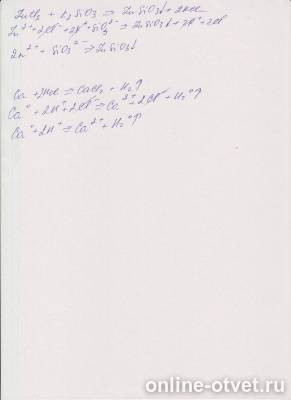 ZnCl₂ + K₂SiO₃ ⇒ ZnSiO₃↓ + 2KCl
Zn²⁺ + 2Cl⁻ + 2K⁺ + SiO₃²⁻ ⇒ ZnSiO₃↓ + 2K⁺ + 2Cl⁻
Zn²⁺ + SiO₃²⁻ ⇒ ZnSiO₃↓
Ca + 2HCl ⇒ CaCl₂ + H₂↑
Ca⁰ + 2H⁺ + 2Cl⁻ ⇒ Ca²⁺ + 2Cl⁻ + H₂⁰↑
Ca⁰ + 2H⁺ ⇒ Ca²⁺ + H₂⁰↑
online-otvet.ru